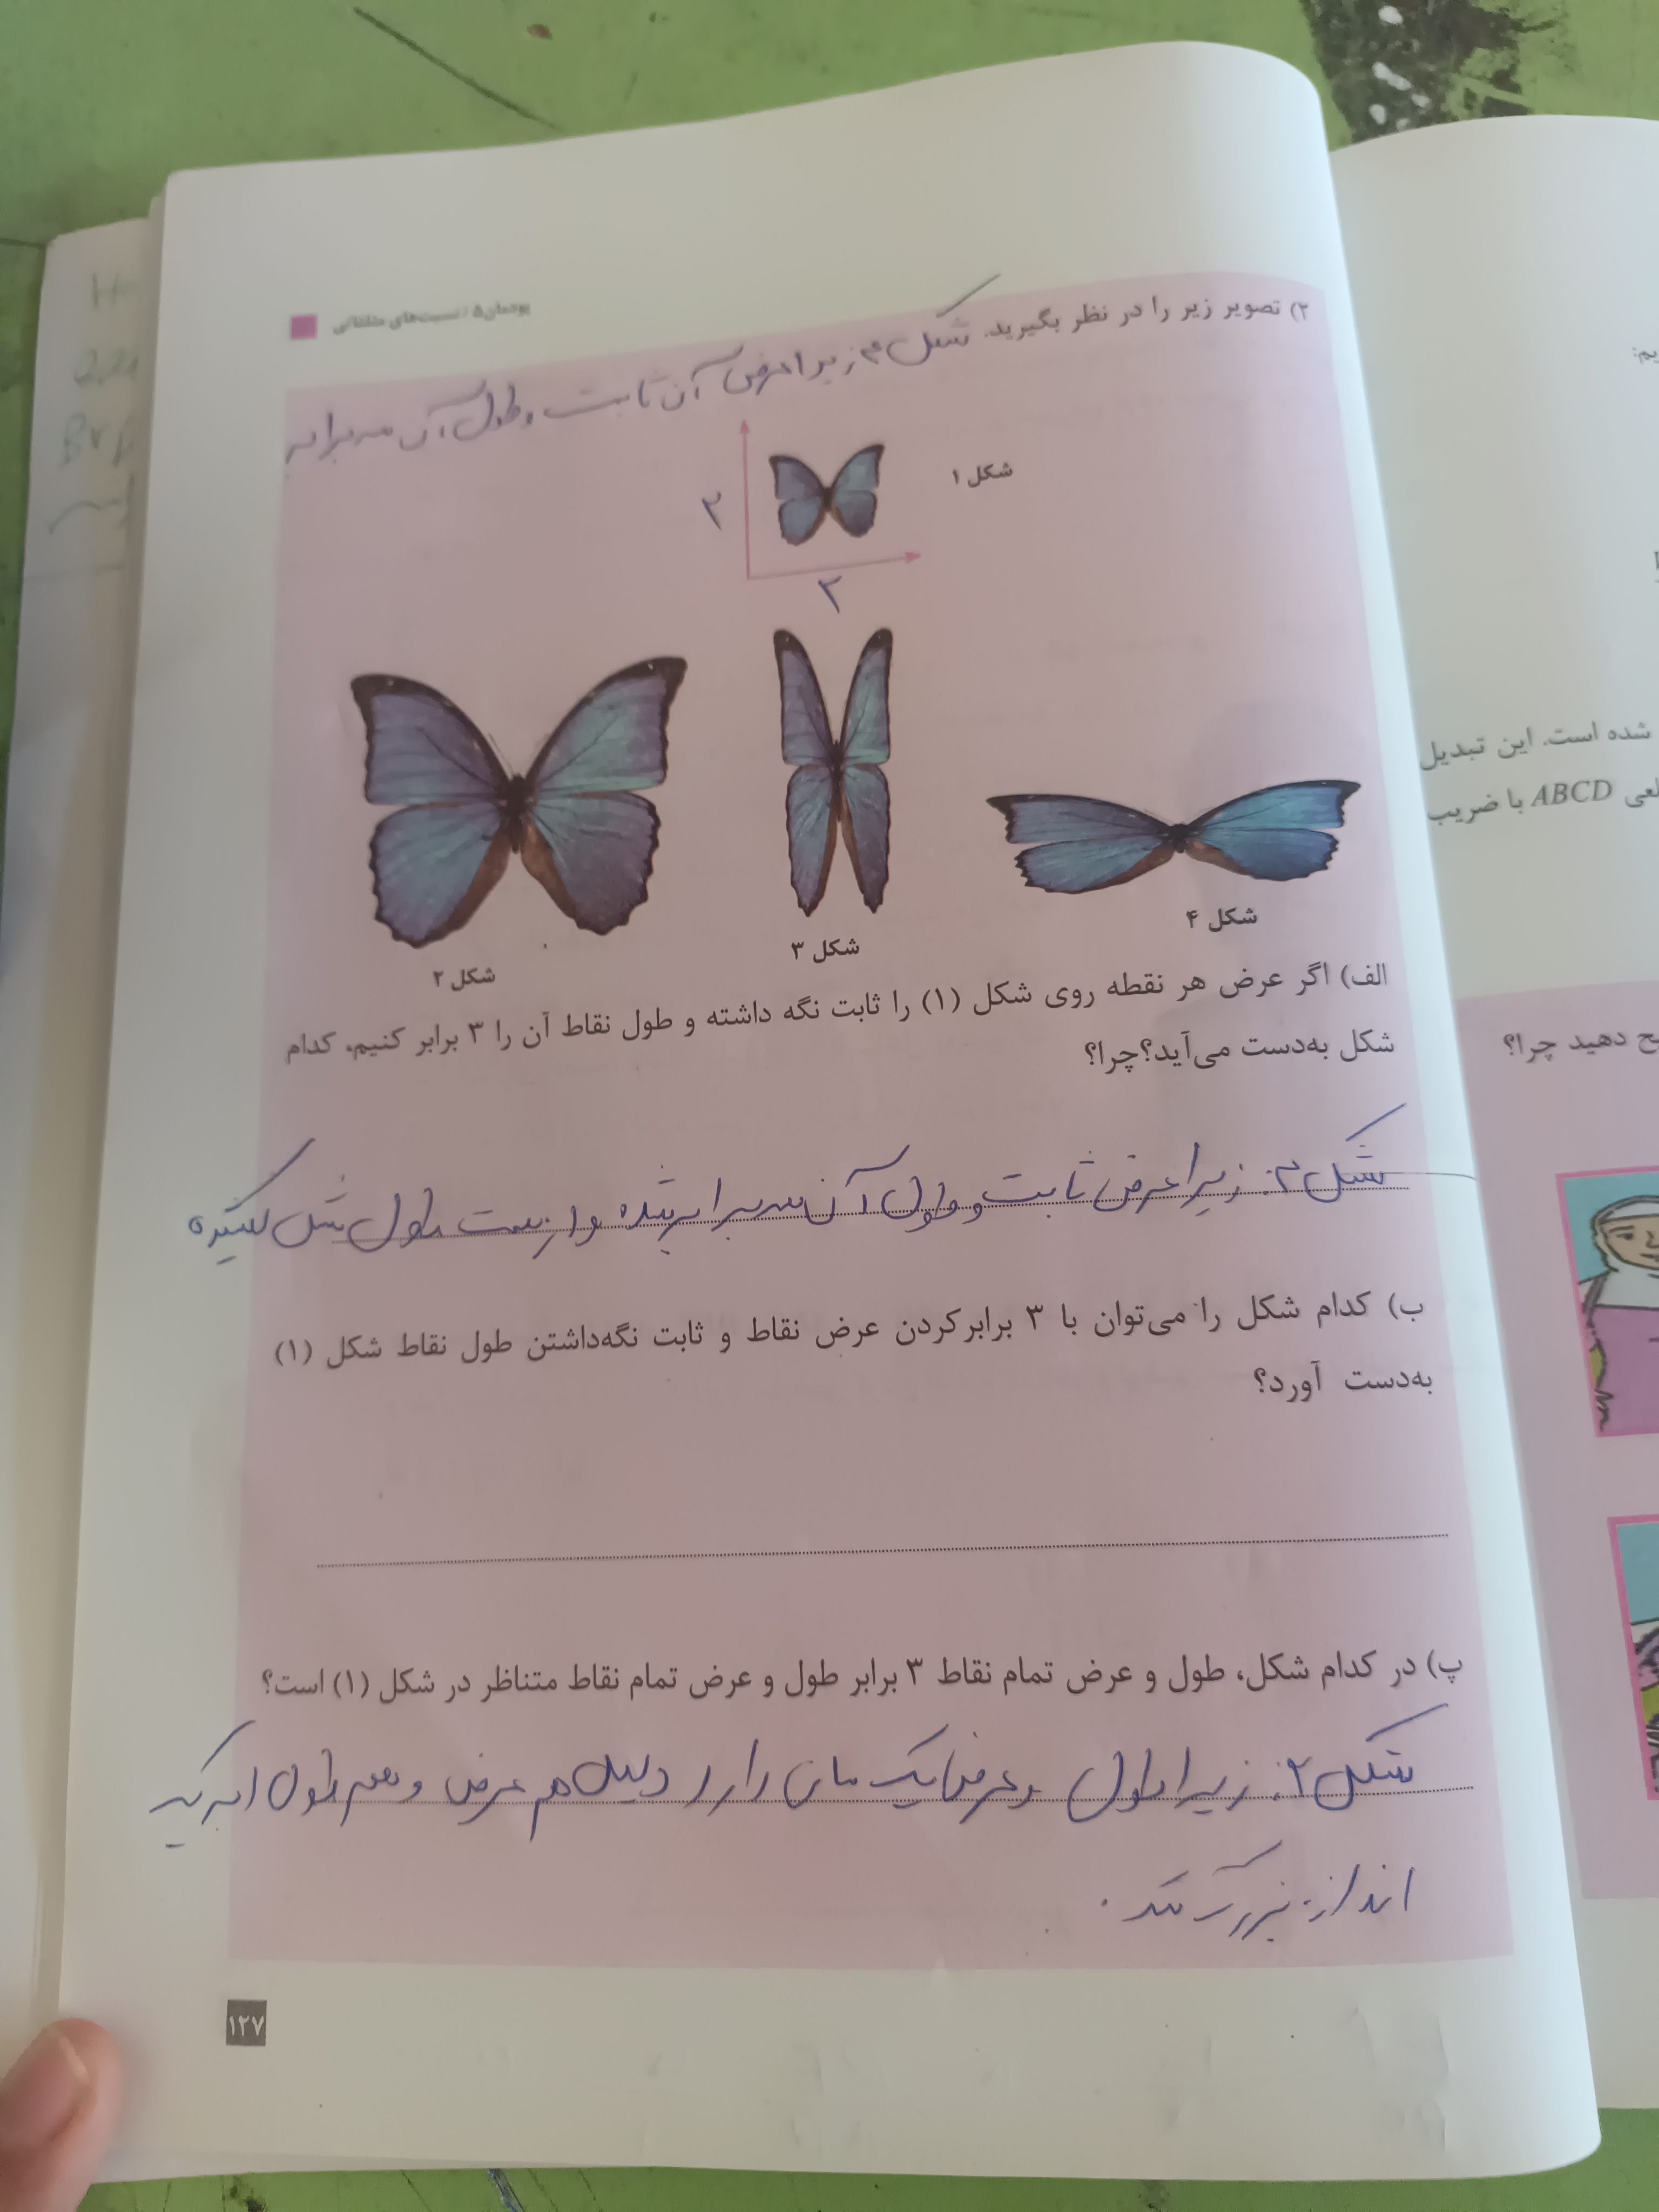 پودمان ۵ : نسبت‌های مثلثاتی
۲) تصویر زیر را در نظر بگیرید.
شکل ۴ زیرا عرض آن ثابت و طول آن سه برابر
شکل ۱
۲
۲
شکل ۲
شکل ۳
شکل ۴
الف) اگر عرض هر نقطه روی شکل (۱) را ثابت نگه داشته و طول نقاط آن را ۳ برابر کنیم، کدام
شکل به‌دست می‌آید؟چرا؟
زیرا عرض ثابت و طول آن سه برابر شده و از سمت طول شکل کشیده
ب) کدام شکل را می‌توان با ۳ برابرکردن عرض نقاط و ثابت نگه‌داشتن طول نقاط شکل (۱)
به‌دست آورد؟
پ) در کدام شکل، طول و عرض تمام نقاط ۳ برابر طول و عرض تمام نقاط متناظر در شکل (۱) است؟
شکل ۲: زیرا طول و عرض دارد هم عرض و هم طول
اندازه بزرگ شد.
۱۲۷
شده است. این تبدیل
ABCD با ضریب
دهید چرا؟